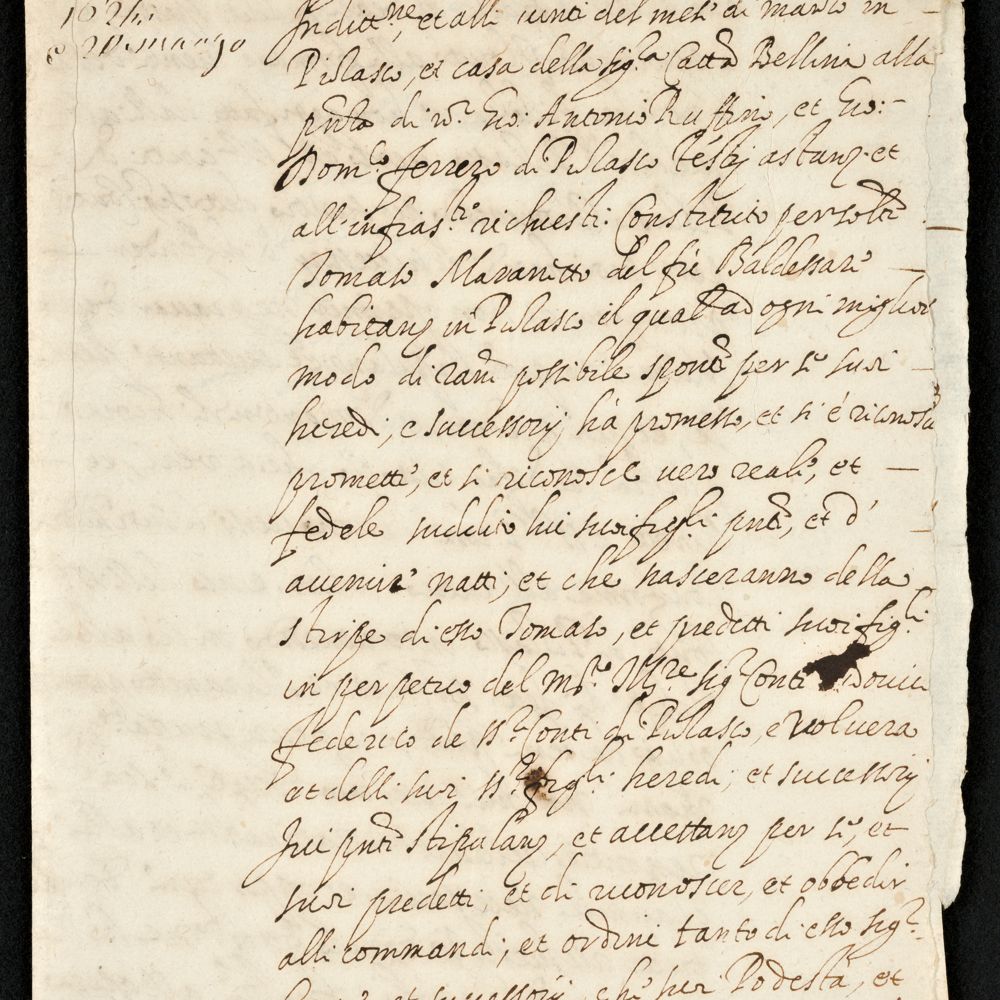 1624
e 20 marzo
Inditt.ne, et alli vinti del mese di marzo in
Piolasco, et casa della sig.a Catta Bellina alla
pnza di m.r Gio: Antonio Ruffino, et Gio:
Dom.co Ferrero di Piolasco testij astanti et
all'infras.ti richiesti: Constituito persolte
Tomaso Maranetto del fu Baldessare
habitante in Piolasco il quale ad ogni miglior
modo di rare possibile sponte per se suoi
heredi, e successorij ha promesso, et si é riconosciu
promette, et si riconosce vero reale, et
fedele suddito lui suoi figli pnti, et d'
avenire natti, et che nasceranno della
stirpe di esso Tomaso, et predetti suoi fig.li
in perpetuo del m.to Ill.re sig. Conte
Federico de ss.ri Conti di Piolasco, e Volvera
et delli suoi ss.ri fig.li heredi, et successorij
Ivi pnte stipulante, et accettante per se, et
suoi predetti, et di riconoscer, et obbedir
alli commandi, et ordini tanto di esso sig.r
et successorij, che suoi Podestà, et